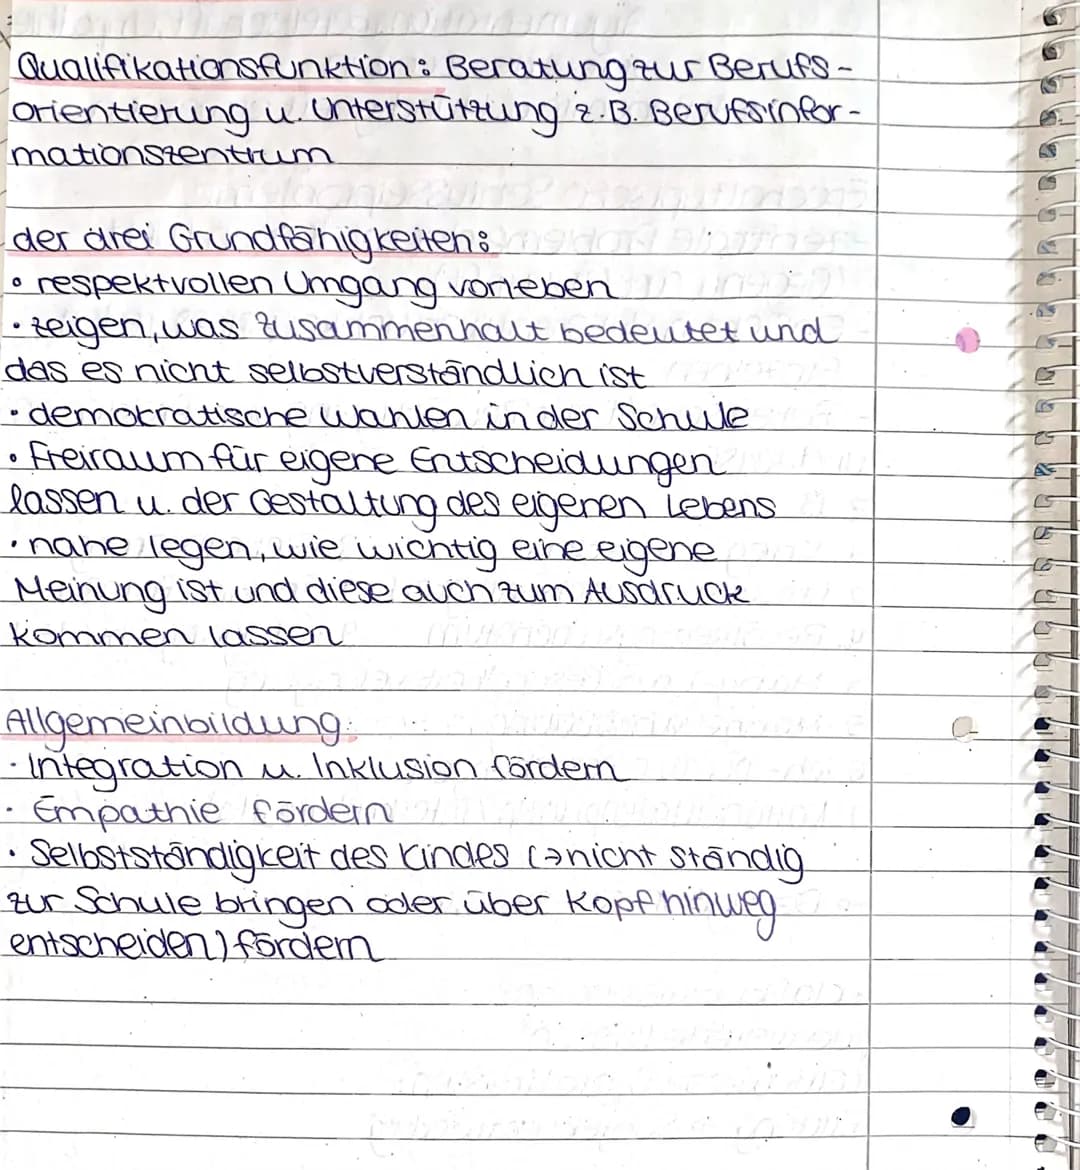 Qualifikationsfunktion: Beratung zur Berufs-
orientierung u. Unterstützung z.B. Berufsinfor-
mationszentrum
der drei Grundfähigkeiten:
• respektvollen Umgang vorleben
• zeigen, was Zusammenhalt bedeutet und
das es nicht selbstverständlich ist
• demokratische Wahlen in der Schule
• Freiraum für eigene Entscheidungen
lassen u. der Gestaltung des eigenen Lebens
• nahe legen, wie wichtig eine eigene
Meinung ist und diese auch zum Ausdruck
kommen lassen
Allgemeinbildung:
• Integration u. Inklusion fördern
• Empathie fördern
• Selbstständigkeit des Kindes (→nicht ständig
zur Schule bringen oder über Kopf hinweg
entscheiden) fördern